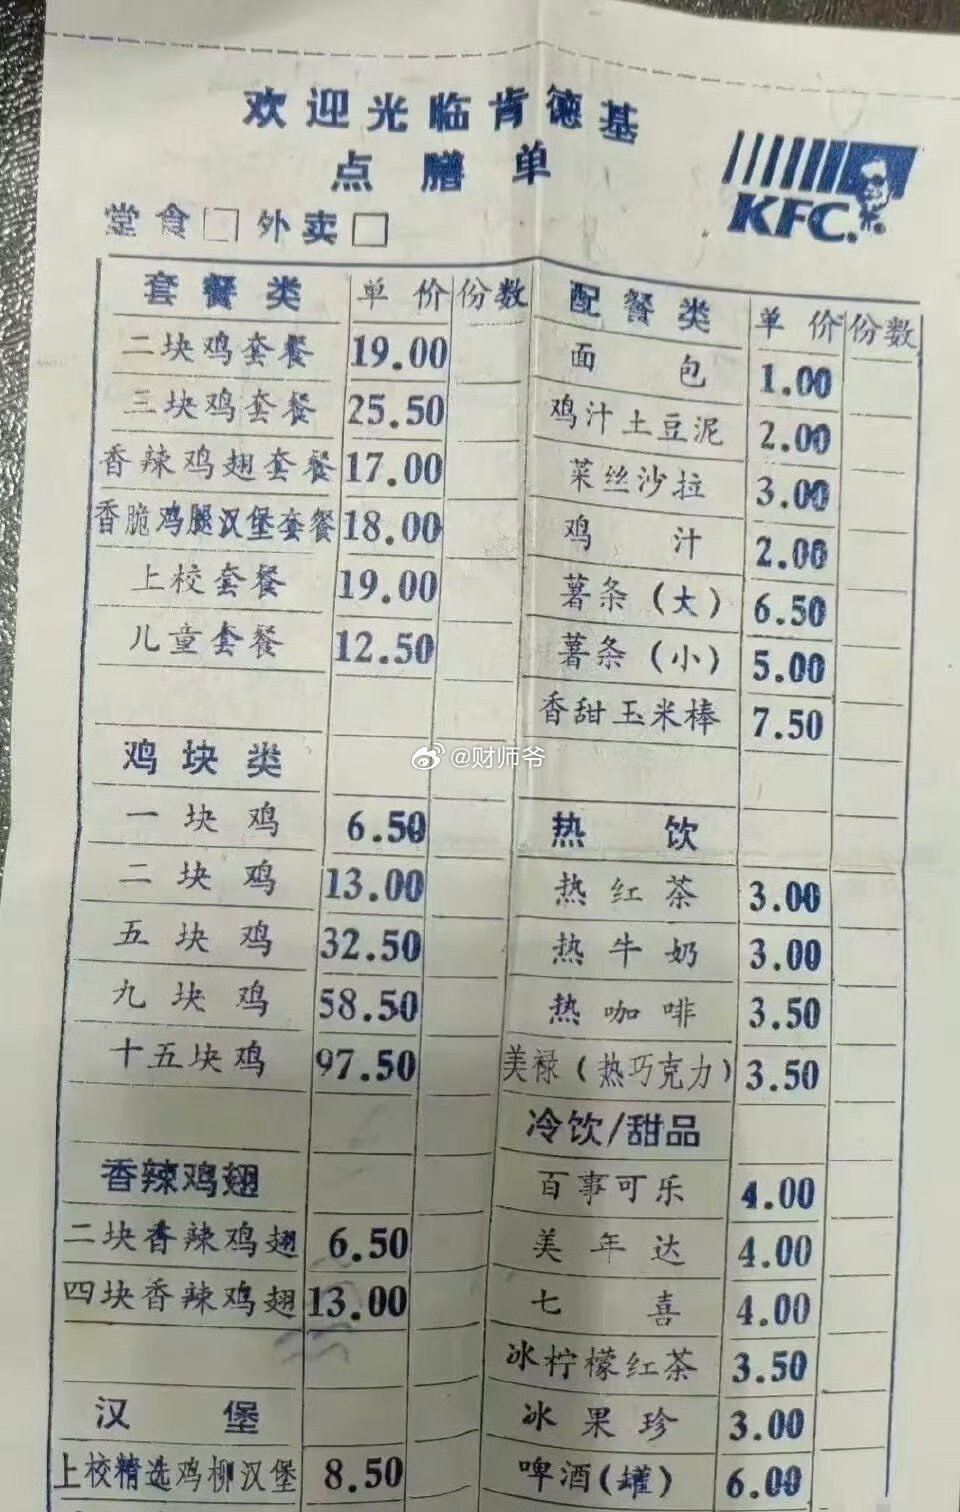 欢迎光临肯德基
点膳单
KFC.
堂食□ 外卖□
套餐类 单价 份数
二块鸡套餐 19.00
三块鸡套餐 25.50
香辣鸡翅套餐 17.00
香脆鸡腿汉堡套餐 18.00
上校套餐 19.00
儿童套餐 12.50
鸡块类
一块鸡 6.50
二块鸡 13.00
五块鸡 32.50
九块鸡 58.50
十五块鸡 97.50
香辣鸡翅
二块香辣鸡翅 6.50
四块香辣鸡翅 13.00
汉堡
上校精选鸡柳汉堡 8.50
配餐类 单价 份数
面包 1.00
鸡汁土豆泥 2.00
菜丝沙拉 3.00
鸡汁 2.00
薯条(大) 6.50
薯条(小) 5.00
香甜玉米棒 7.50
热饮
热红茶 3.00
热牛奶 3.00
热咖啡 3.50
美禄(热巧克力) 3.50
冷饮/甜品
百事可乐 4.00
美年达 4.00
七喜 4.00
冰柠檬红茶 3.50
冰果珍 3.00
啤酒(罐) 6.00
@财师爷